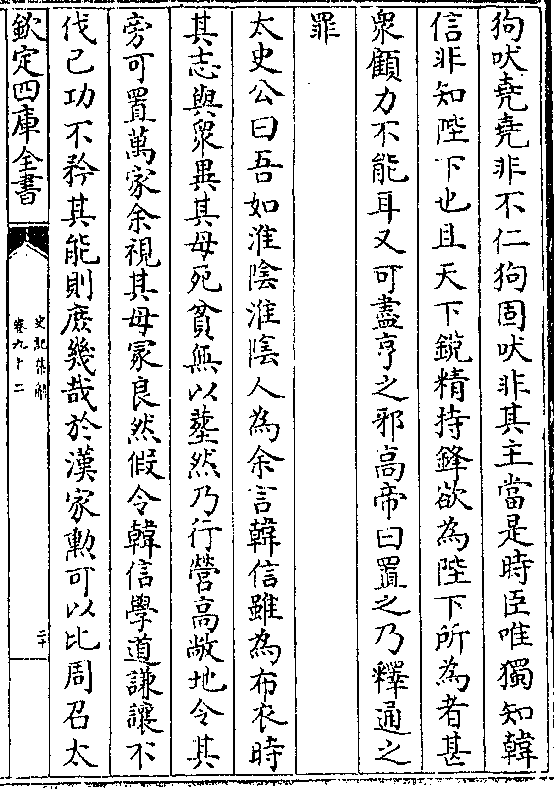 狗吠堯堯非不仁狗固吠非其主當是時臣唯獨知韓
信非知陛下也且天下鋭精持鋒欲為陛下所為者甚
衆顧力不能耳又可盡亨之邪髙帝曰置之乃釋通之
罪
太史公曰吾如淮陰淮陰人為余言韓信雖為布衣時
其志與衆異其母死貧無以塟然乃行營髙敞地令其
旁可置萬家余視其母冢良然假令韓信學道謙讓不
伐己功不矜其能則庶幾哉於漢家勲可以比周召太
欽定四庫全書
史記集解
卷九十二
二十